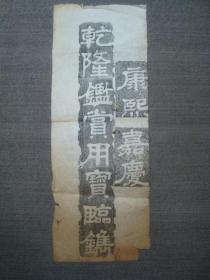 康熙嘉慶
乾隆鑑賞用寶臨鐫